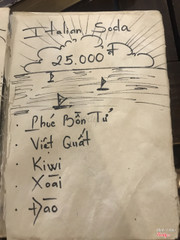 Italian Soda
25.000 đ
Phúc Bồn Tử
Việt Quất
Kiwi
Xoài
Đào